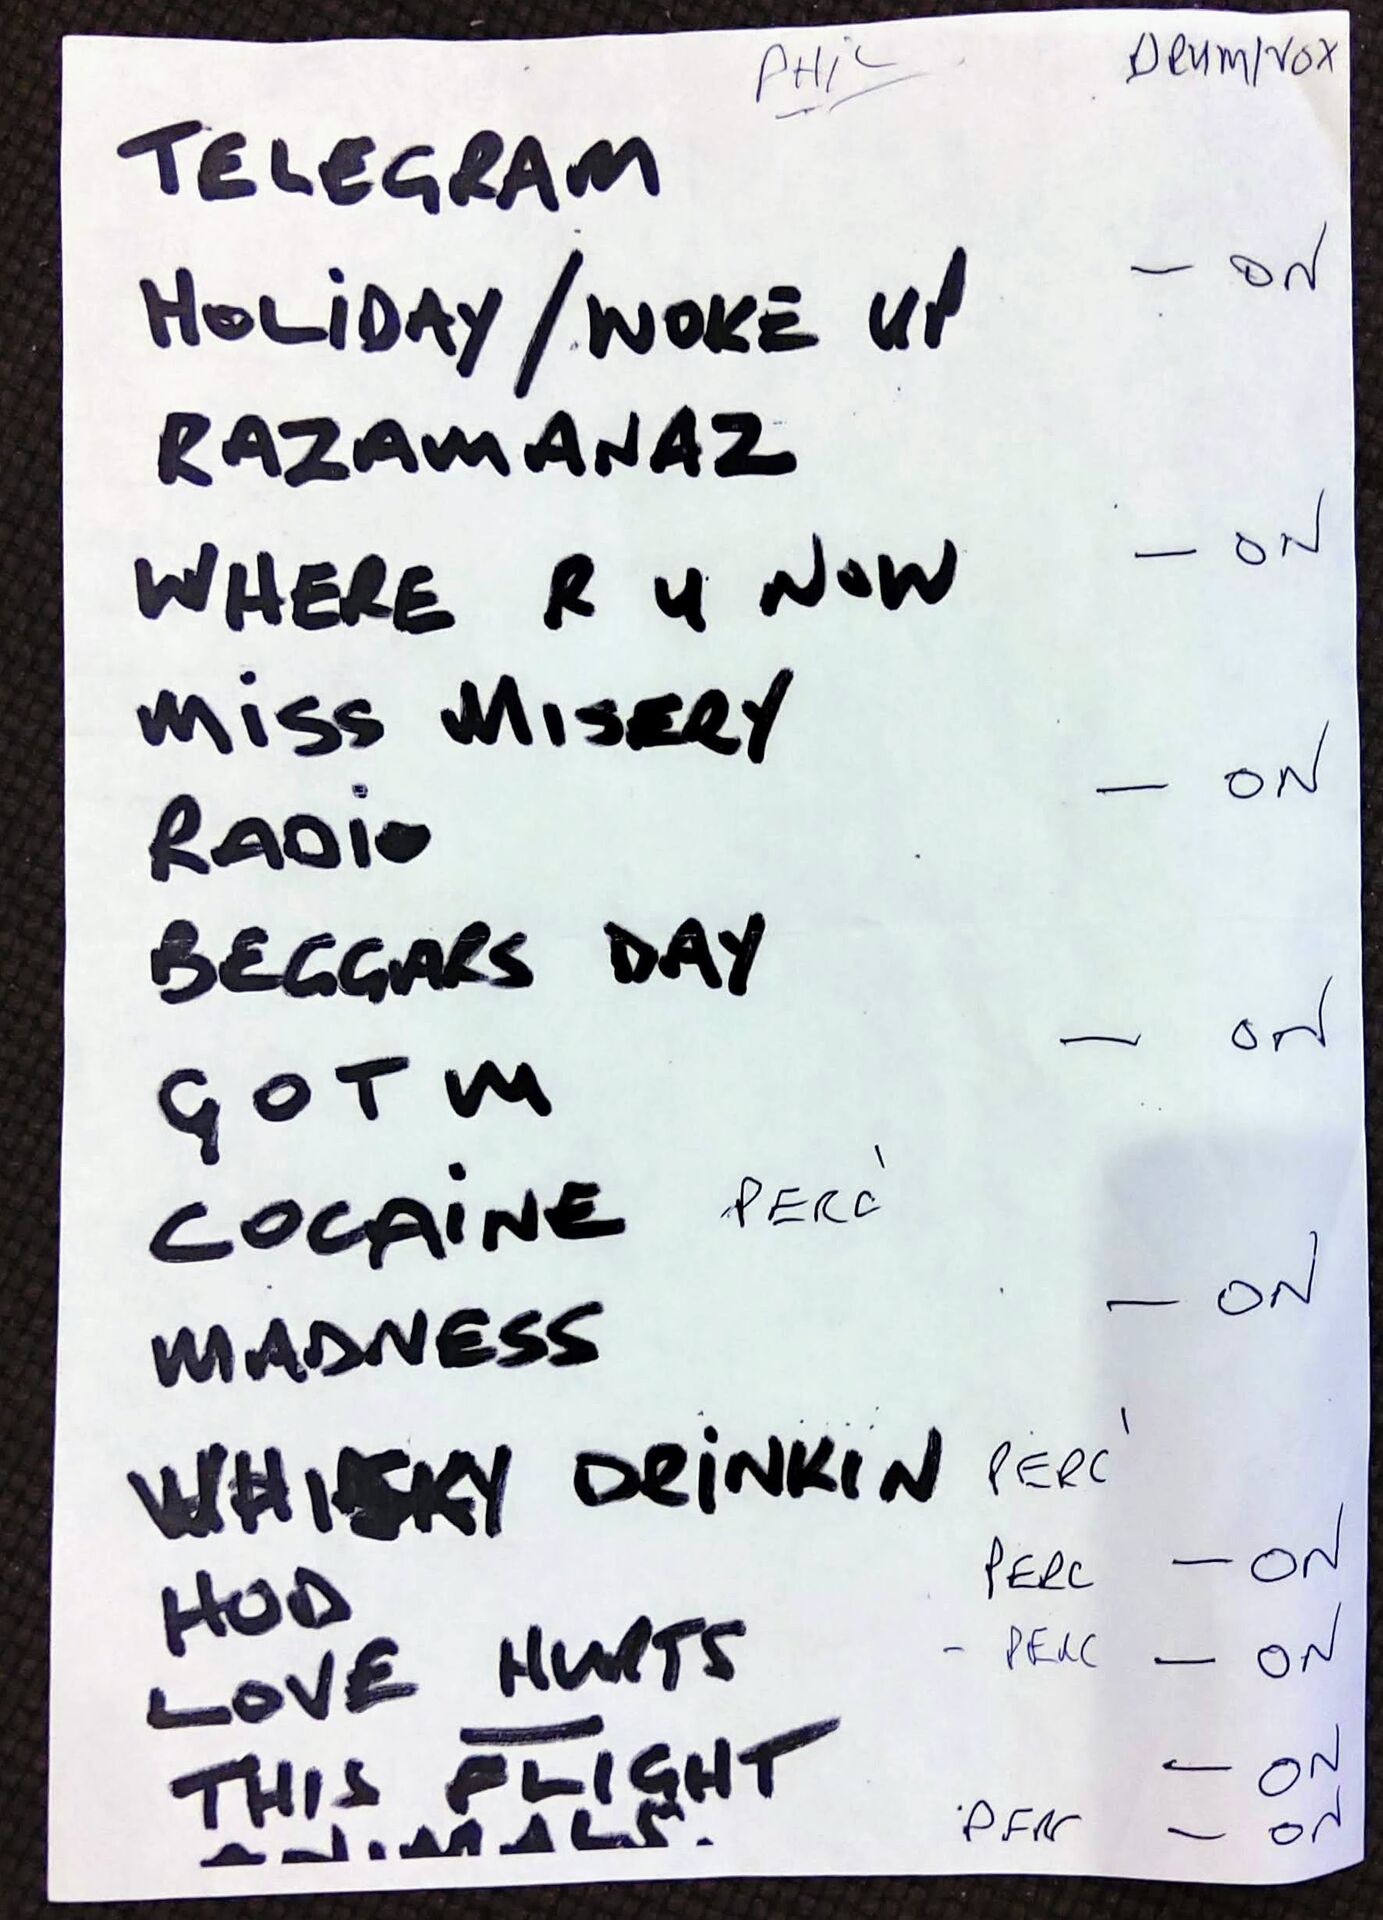 PHIL DRUM/VOX
TELEGRAM
HOLIDAY/WOKE UP — ON
RAZAMANAZ
WHERE R U NOW — ON
MISS MISERY
RADIO — ON
BEGGARS DAY
GOTM — ON
COCAINE PERC'
MADNESS — ON
WHISKY DRINKIN PERC'
HOD PERC — ON
LOVE HURTS - PERC — ON
THIS FLIGHT — ON
ANIMALS. PERC — ON